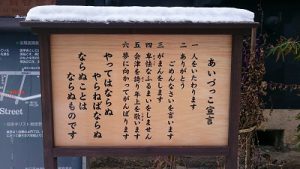 あいづっこ宣言
一 人をいたわります
二 ありがとう
ごめんなさいを言います
三 がまんをします
四 卑怯なふるまいをしません
五 会津を誇り年上を敬います
六 夢に向かってがんばります
やってはならぬ
やらねばならぬ
ならぬことは
ならぬものです
Street